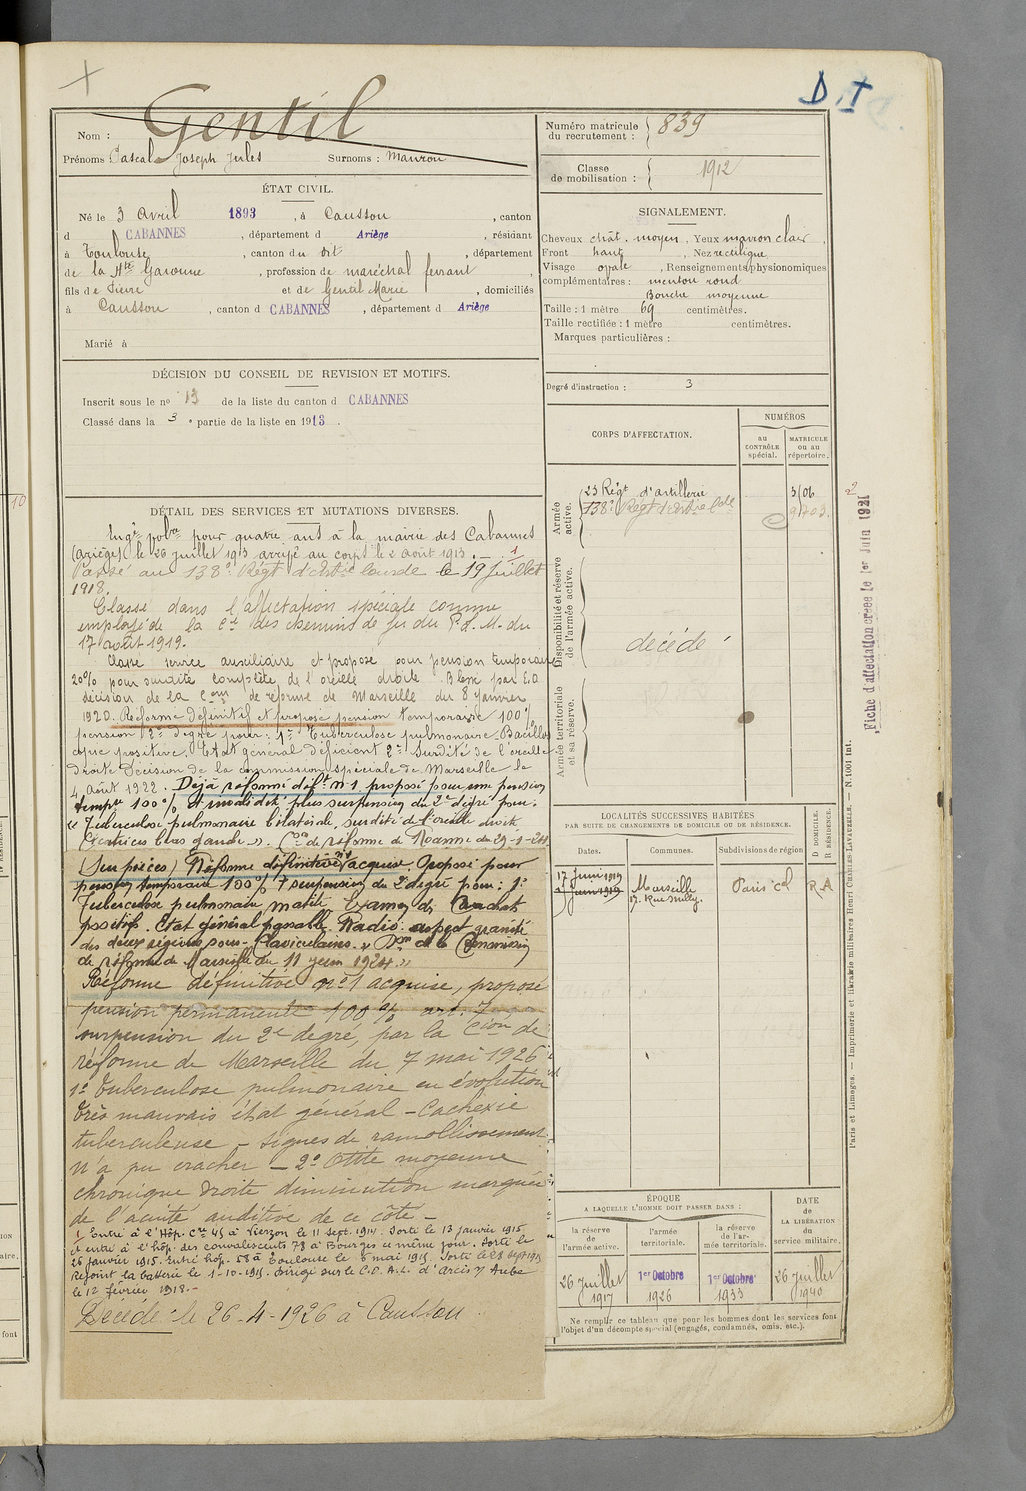 D.T
Nom : Gentil
Prénoms Pascal Joseph Jules Surnoms : Maurou
Numéro matricule du recrutement : 839
Classe de mobilisation : 1912
ÉTAT CIVIL.
Né le 3 Avril 1893, à Caussou, canton
d CABANNES, département d Ariège, résidant
à Toulouse, canton du dit, département
de la Hte Garonne, profession de maréchal ferrant,
fils de Pierre et de Gentil Marie, domiciliés
à Caussou, canton d CABANNES, département d Ariège
Marié à
SIGNALEMENT.
Cheveux chât. moyen, Yeux marron clair,
Front haut, Nez rectiligne
Visage ovale, Renseignements physionomiques
complémentaires : menton rond
Bouche moyenne
Taille : 1 mètre 69 centimètres.
Taille rectifiée : 1 mètre centimètres.
Marques particulières :
Degré d'instruction : 3
DÉCISION DU CONSEIL DE REVISION ET MOTIFS.
Inscrit sous le no 13 de la liste du canton d CABANNES
Classé dans la 3e partie de la liste en 1913.
DÉTAIL DES SERVICES ET MUTATIONS DIVERSES.
Engé pour quatre ans à la mairie des Cabannes
(Ariège) le 26 juillet 1913 arrivé au corps le 2 août 1913. — 1
Passé au 138e Régt d'Artie lourde le 19 Juillet
1918.
Classé dans l'affectation spéciale comme
employé de la Cie des chemins de fer du P.L.M. du
17 août 1919.
Classé service auxiliaire et proposé pour pension temporaire
20% pour surdité complète de l'oreille droite. Blessé par E.O
décision de la Com de réforme de Marseille du 8 janvier
1920. Réformé définitif et proposé pension temporaire 100%
pension 2e degré pour : 1° Tuberculose pulmonaire. Bacillos
copie positive. Etat général déficient 2° Surdité de l'oreille
droite Décision de la commission spéciale de Marseille le
4 Août 1922. Déjà réformé déft n°1 proposé pour une pension
tempre 100% et invalidité plus suspension du 2e degré pour.
"Tuberculose pulmonaire bilatérale, surdité de l'oreille droite
Cicatrices bras gauche". Con de réforme de Roanne du 29-1-24
(Sur pièces) Réforme définitive n°1 acquise. Proposé pour
pension temporaire 100% 7 suspension du 2e degré pour : 1°
Tuberculose pulmonaire matité Examen de Crachats
positifs. Etat général passable. Radio : aspect granité
des deux régions sous-claviculaires. " Don de la Commission
de réforme de Marseille du 11 juin 1924."
Réforme définitive n°1 acquise, proposé
pension permanente 100% art. 7
suspension du 2e degré, par la Cion de
réforme de Marseille du 7 mai 1926
1° Tuberculose pulmonaire en évolution
très mauvais état général - Cachexie
tuberculeuse - signes de ramollissement
n'a pu cracher — 2° Otite moyenne
chronique droite diminution marquée
de l'acuité auditive de ce côté —
1 Entré à l'Hôp. Cre 45 à Vierzon le 11 Sept. 1914. Sorti le 13 janvier 1915
et entré à l'hôp. des convalescents 73 à Bourges ce même jour. Sorti le
26 janvier 1915. Entré hôp. 58 à Toulouse le 8 mai 1915. Sorti le 28 sept 1915
Rejoint la batterie le 1-10-1915. Dirigé sur le C.O.A.L. d'Arcis s/ Aube
le 12 février 1918. —
Décédé : le 26-4-1926 à Caussou.
CORPS D'AFFECTATION.
NUMÉROS
au CONTRÔLE spécial.
MATRICULE ou au répertoire.
Armée active.
23 Régt d'artillerie 3106
138e Régt d'Artie Lde 9703
2
Disponibilité et réserve de l'armée active.
décédé
Armée territoriale et sa réserve.
Fiche d'affectation créée le 1er Juin 1921
LOCALITÉS SUCCESSIVES HABITÉES
PAR SUITE DE CHANGEMENTS DE DOMICILE OU DE RÉSIDENCE.
Dates. Communes. Subdivisions de région
D DOMICILE. R RÉSIDENCE.
17 Juin 1919 Marseille Paris cl R.A
ÉPOQUE
A LAQUELLE L'HOMME DOIT PASSER DANS :
la réserve de l'armée active.
l'armée territoriale.
la réserve de l'armée territoriale.
DATE DE LA LIBÉRATION du service militaire.
26 Juillet 1917
1er Octobre 1926
1er Octobre 1933
26 Juillet 1940
Ne remplir ce tableau que pour les hommes dont les services font
l'objet d'un décompte spécial (engagés, condamnés, omis, etc.).
Paris et Limoges. — Imprimerie et librairie militaires Henri CHARLES-LAVAUZELLE. — N. 1001 int.